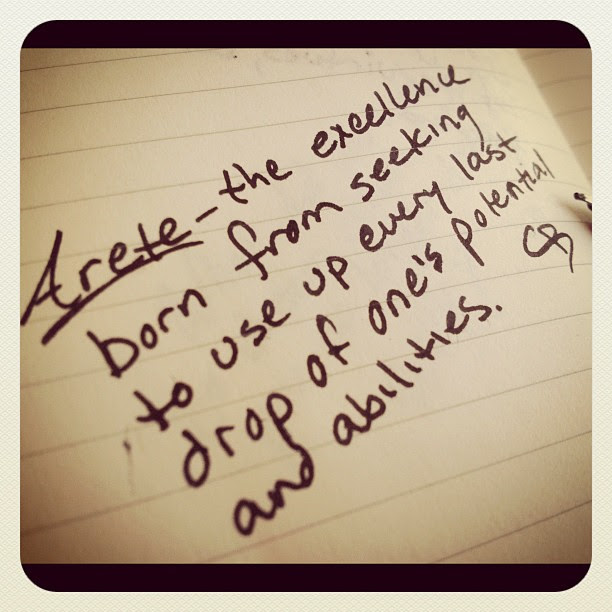 Arete-the excellence
born from seeking
to use up every last
drop of one's potential
and abilities.